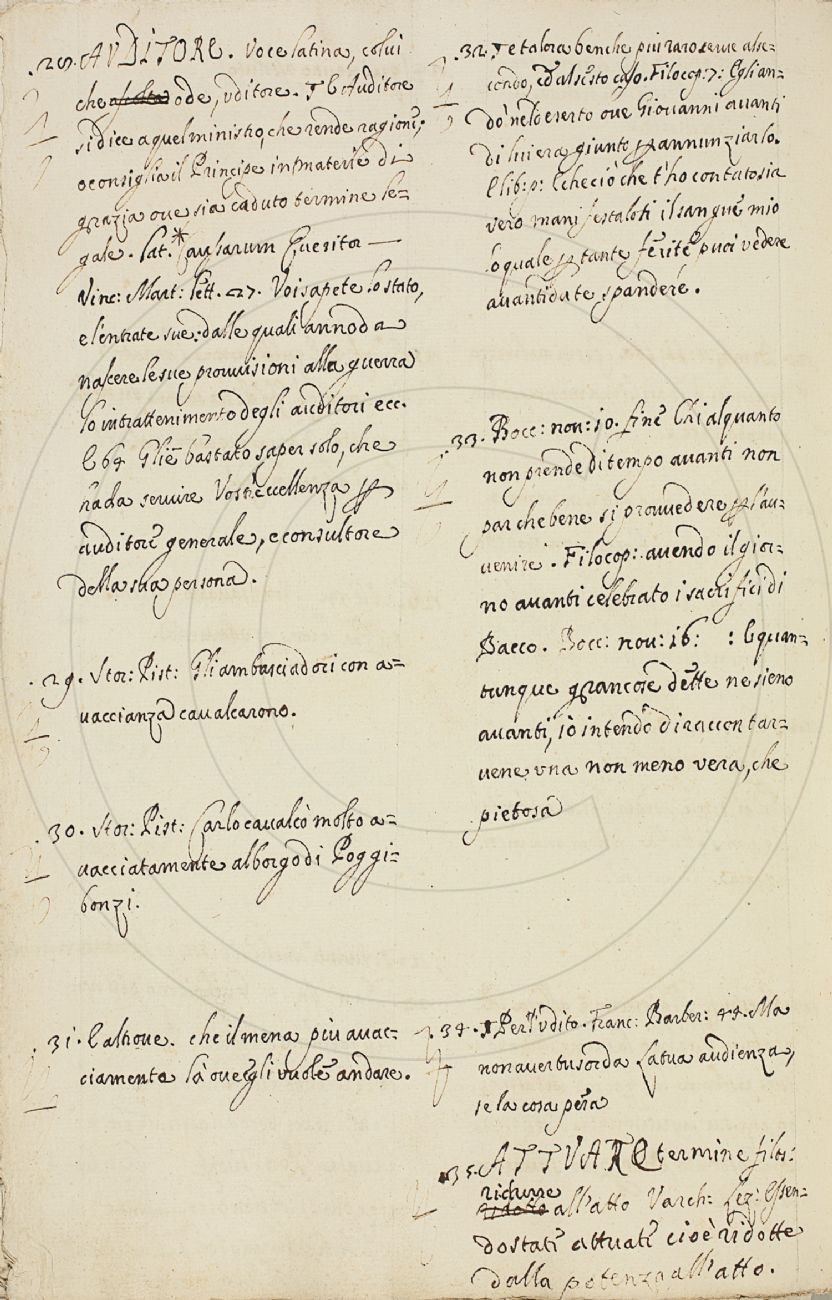 28. AVDITORE. Voce latina, colui
che ascolta ode, vditore. Auditore
si dice a quel ministro, che rende ragione;
o consiglia il Principe in materie di
grazia oue sia caduto termine le=
gale. Lat. *Causarum Quesitor —
Vinc: Mart: lett. 27. Voi sapete lo stato,
e l'entrate sue: dalle quali annoda
nascere le sue prouuisioni alla guerra
lo intrattenimento degli auditori ecc.
E 64 Gliè bastato saper solo, che
hada seruire Vostr'Eccellenza p
auditore generale, e consultore
della sua persona.
29. Stor: Pist: Gli ambasciadori con a=
uaccianza caualcarono.
30. Stor: Pist: Carlo caualcò molto a=
uacciatamente al borgo di Poggi=
bonzi.
31. E altroue. che il mena più auac=
ciamente là oue egli vuole andare.
32. T e talora benche piu raro serue al se=
condo, ed al sesto caso. Filocop: 7: Egli an=
dò nel deserto oue Giouanni auanti
di lui era giunto p annunziarlo.
E lib: p: E che ciò che t'ho contato sia
vero manifestaloti il sangue mio
lo quale p tante ferite puoi vedere
auanti da te spandere.
33. Bocc: nou: 10. fine Chi alquanto
non prende di tempo auanti non
par che bene si prouuedere p l'au=
uenire. Filocop: auendo il gior=
no auanti celebrato i sacrifici di
Bacco. Bocc: nou: 16: : E quan=
tunque gran cose dette ne sieno
auanti, io intendo di raccontar=
uene vna non meno vera, che
pietosa
34. T Per l'vdito. Franc: Barber: 44. Ma
non auer tu sorda la tua audienza,
se la cosa pesa
35. ATTVARE termine filos:
ridurre
ridotto all'atto Varch: Lez: Essen=
do stati attuati cioè ridotte
dalla potenza all'atto.